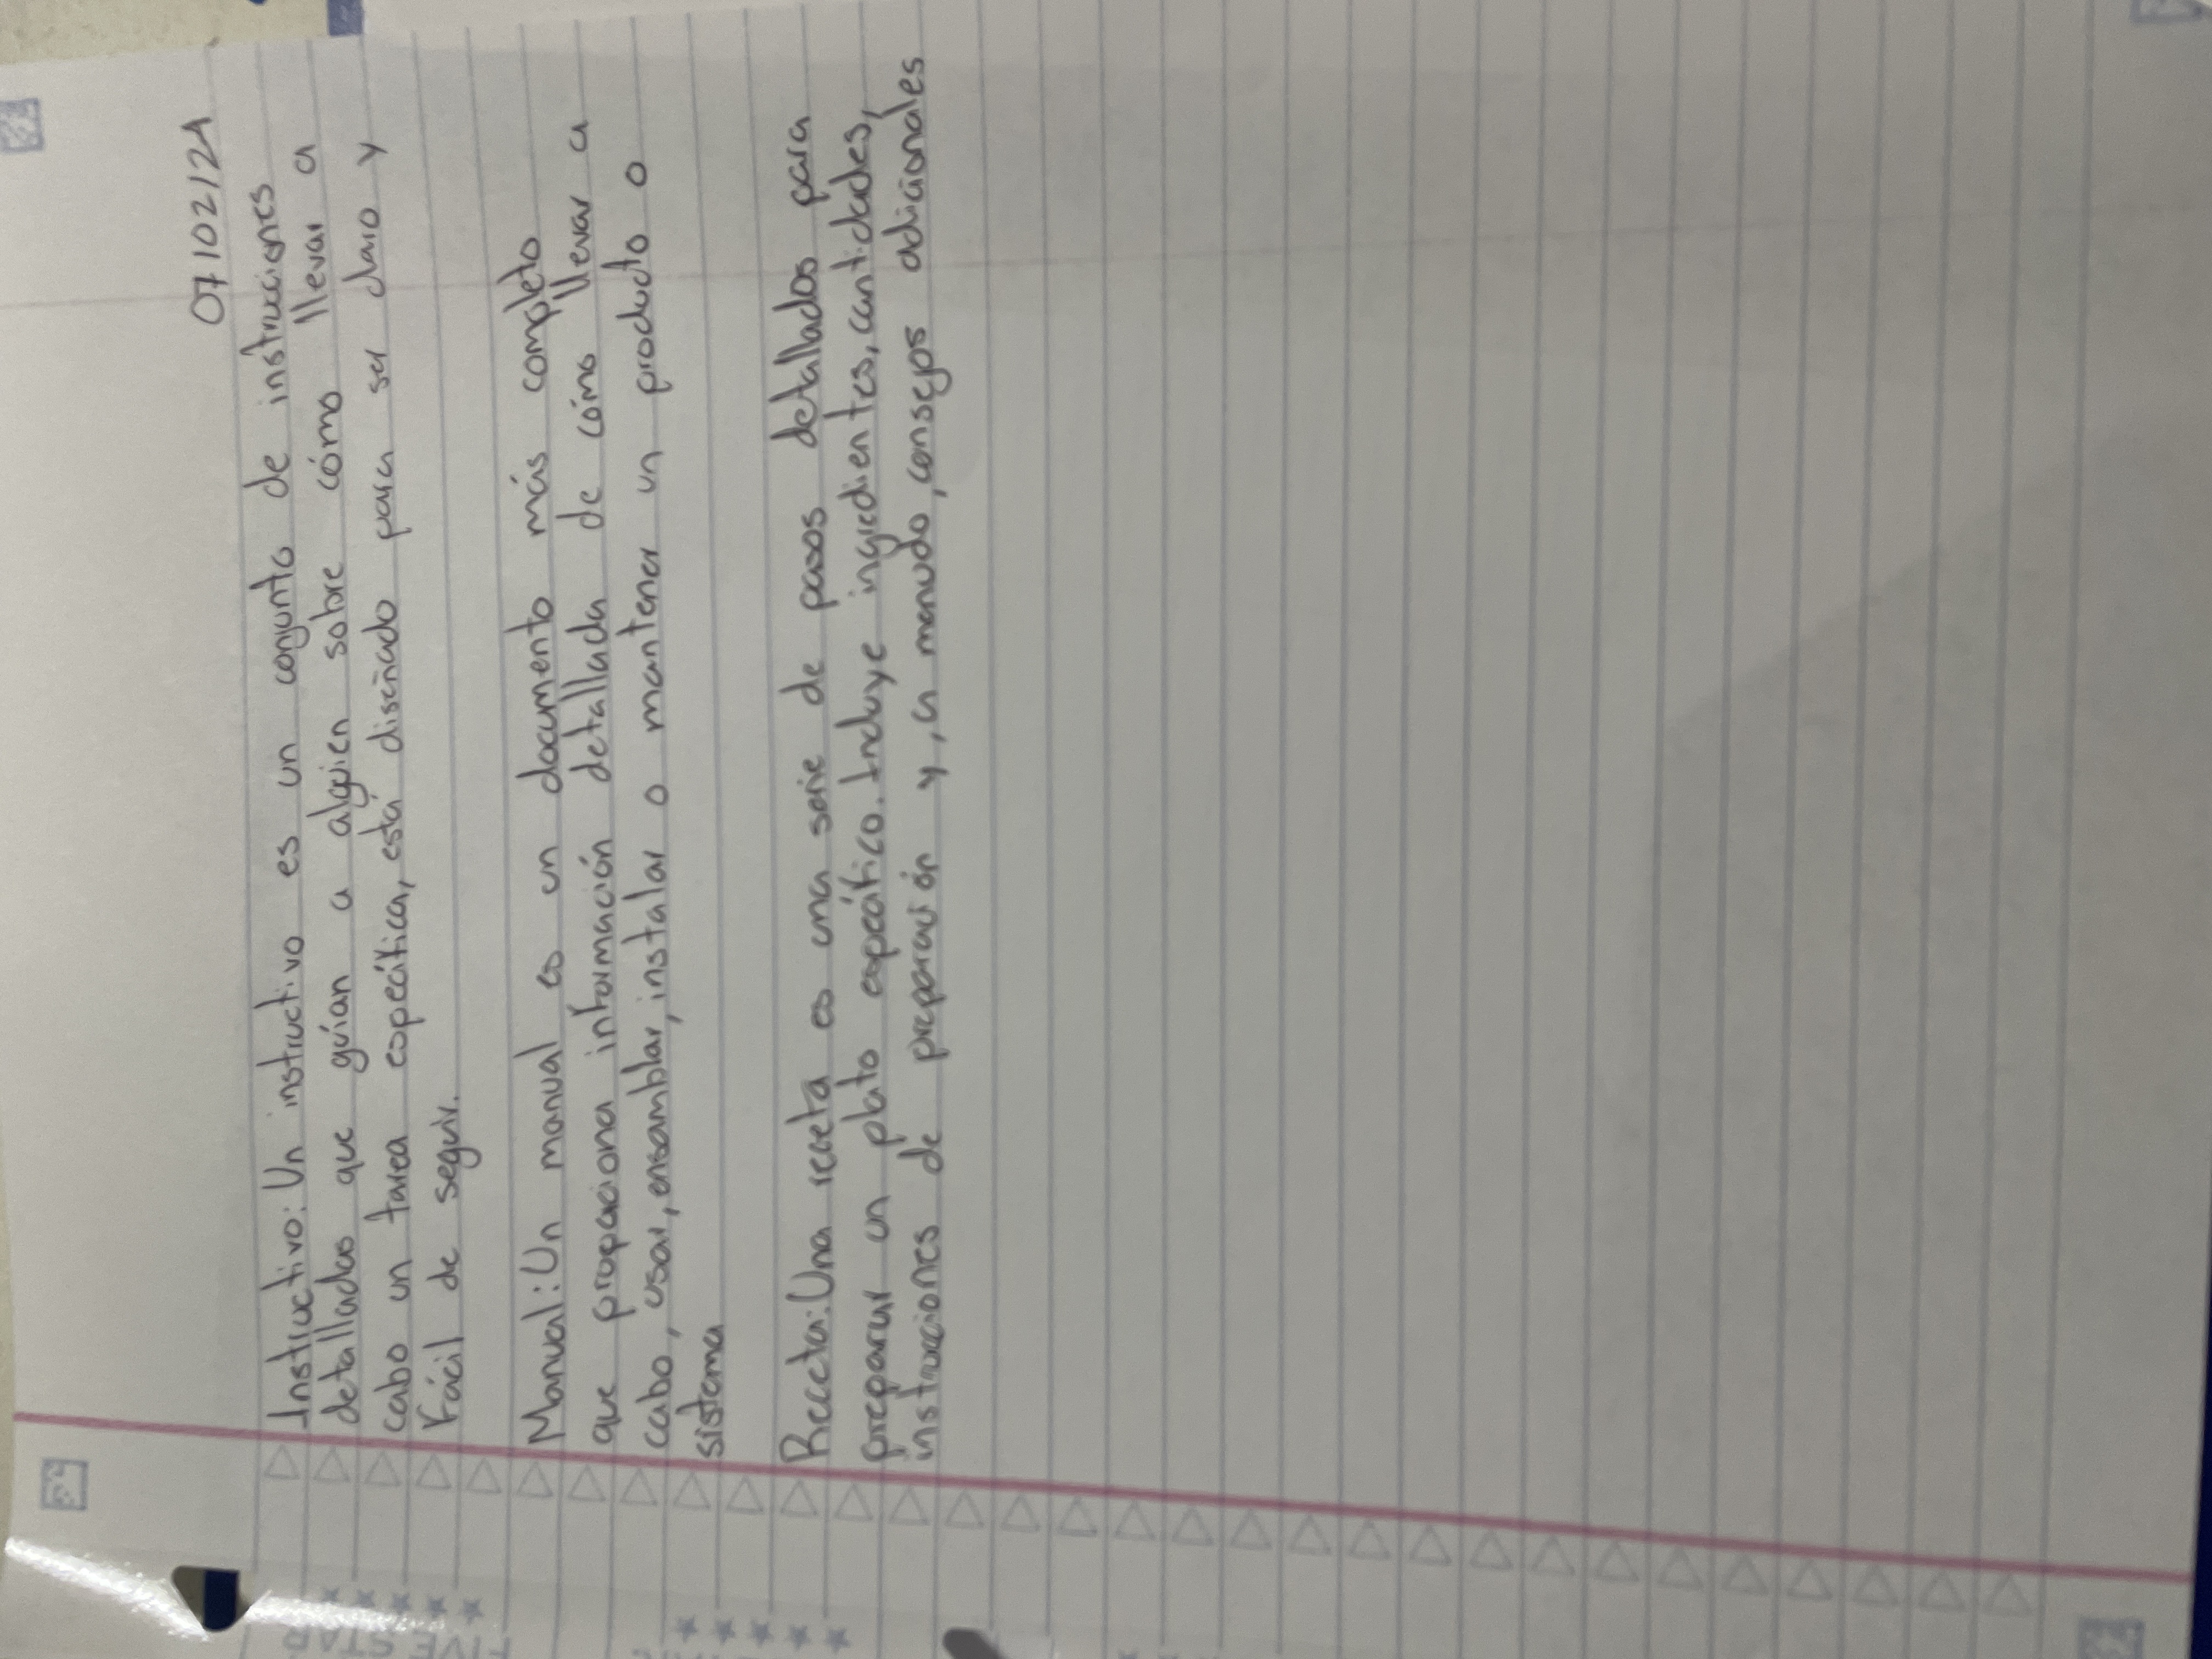 07/02/24
Instructivo: Un instructivo es un conjunto de instrucciones
detallados que guían a alguien sobre cómo llevar a
cabo un tarea específica, está diseñado para ser claro y
Fácil de seguir.
Manual: Un manual es un documento más completo
que proporciona información detallada de cómo llevar a
cabo, usar, ensamblar, instalar o mantener un producto o
sistema
Receta: Una receta es una serie de pasos detallados para
preparar un plato específico. Incluye ingredientes, cantidades,
instrucciones de preparación y, a menudo, consejos adicionales
FIVE STAR